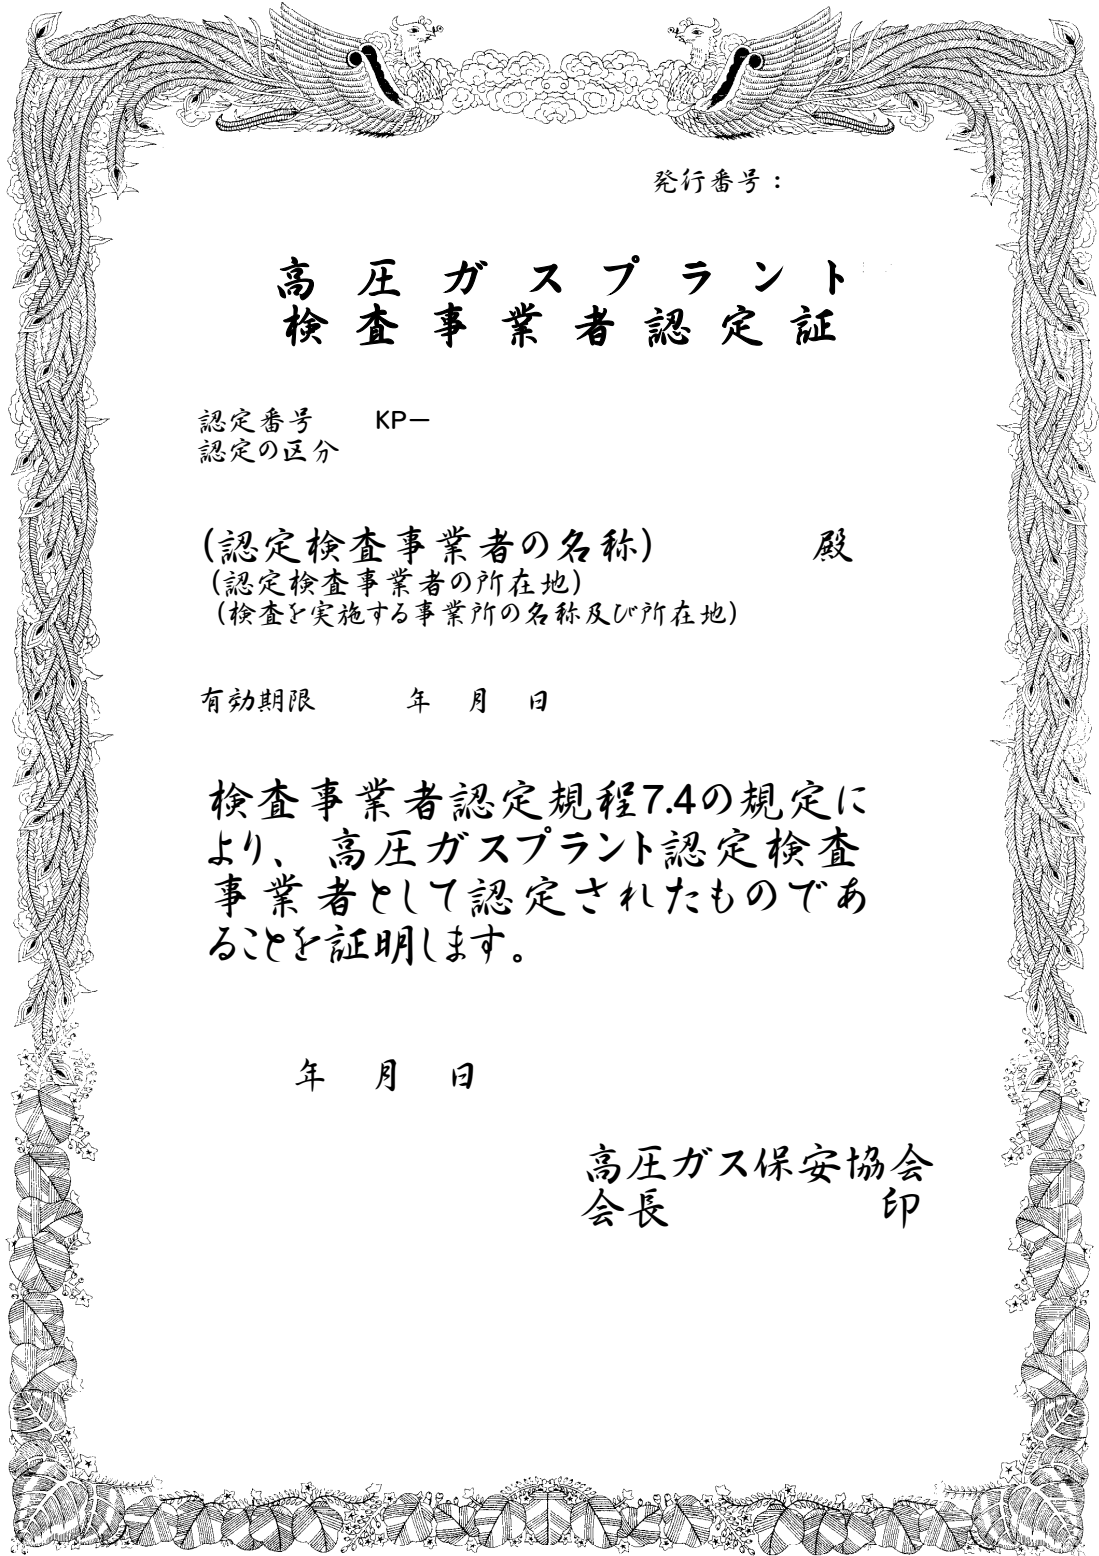 発行番号：
高圧ガスプラント
検査事業者認定証
認定番号　　KP－
認定の区分
(認定検査事業者の名称)　　　　殿
(認定検査事業者の所在地)
(検査を実施する事業所の名称及び所在地)
有効期限　　　年　月　日
検査事業者認定規程7.4の規定に
より、高圧ガスプラント認定検査
事業者として認定されたものであ
ることを証明します。
年　月　日
高圧ガス保安協会
会長　　　　　印